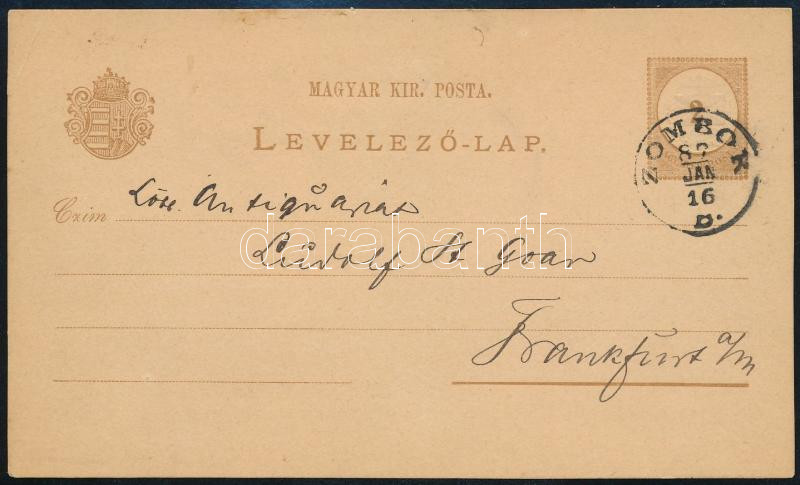 MAGYAR KIR. POSTA.
LEVELEZŐ-LAP.
2
ZOMBOR
87
JAN
16
B.
Czim
Antiquariat
Ludolf St Goar
Frankfurt a/m
darabanth